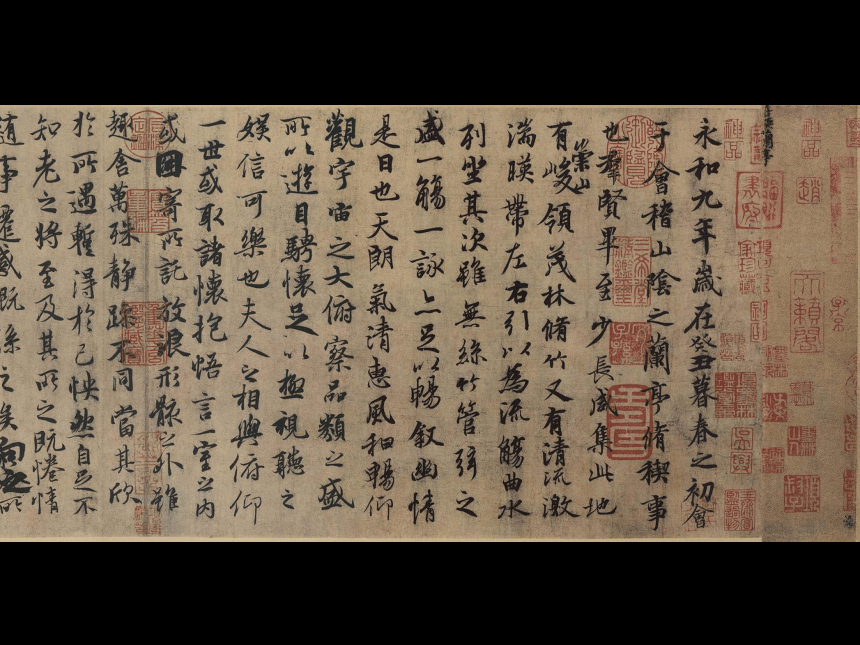 永和九年歲在癸丑暮春之初會
于會稽山陰之蘭亭脩禊事
也羣賢畢至少長咸集此地
有崇山峻領茂林脩竹又有清流激
湍暎帶左右引以為流觴曲水
列坐其次雖無絲竹管弦之
盛一觴一詠亦足以暢叙幽情
是日也天朗氣清惠風和暢仰
觀宇宙之大俯察品類之盛
所以遊目騁懷足以極視聽之
娛信可樂也夫人之相與俯仰
一世或取諸懷抱悟言一室之內
或因寄所託放浪形骸之外雖
趣舍萬殊静躁不同當其欣
於所遇蹔得於己怏然自足不
知老之將至及其所之既惓情
隨事遷感慨係之矣向之所